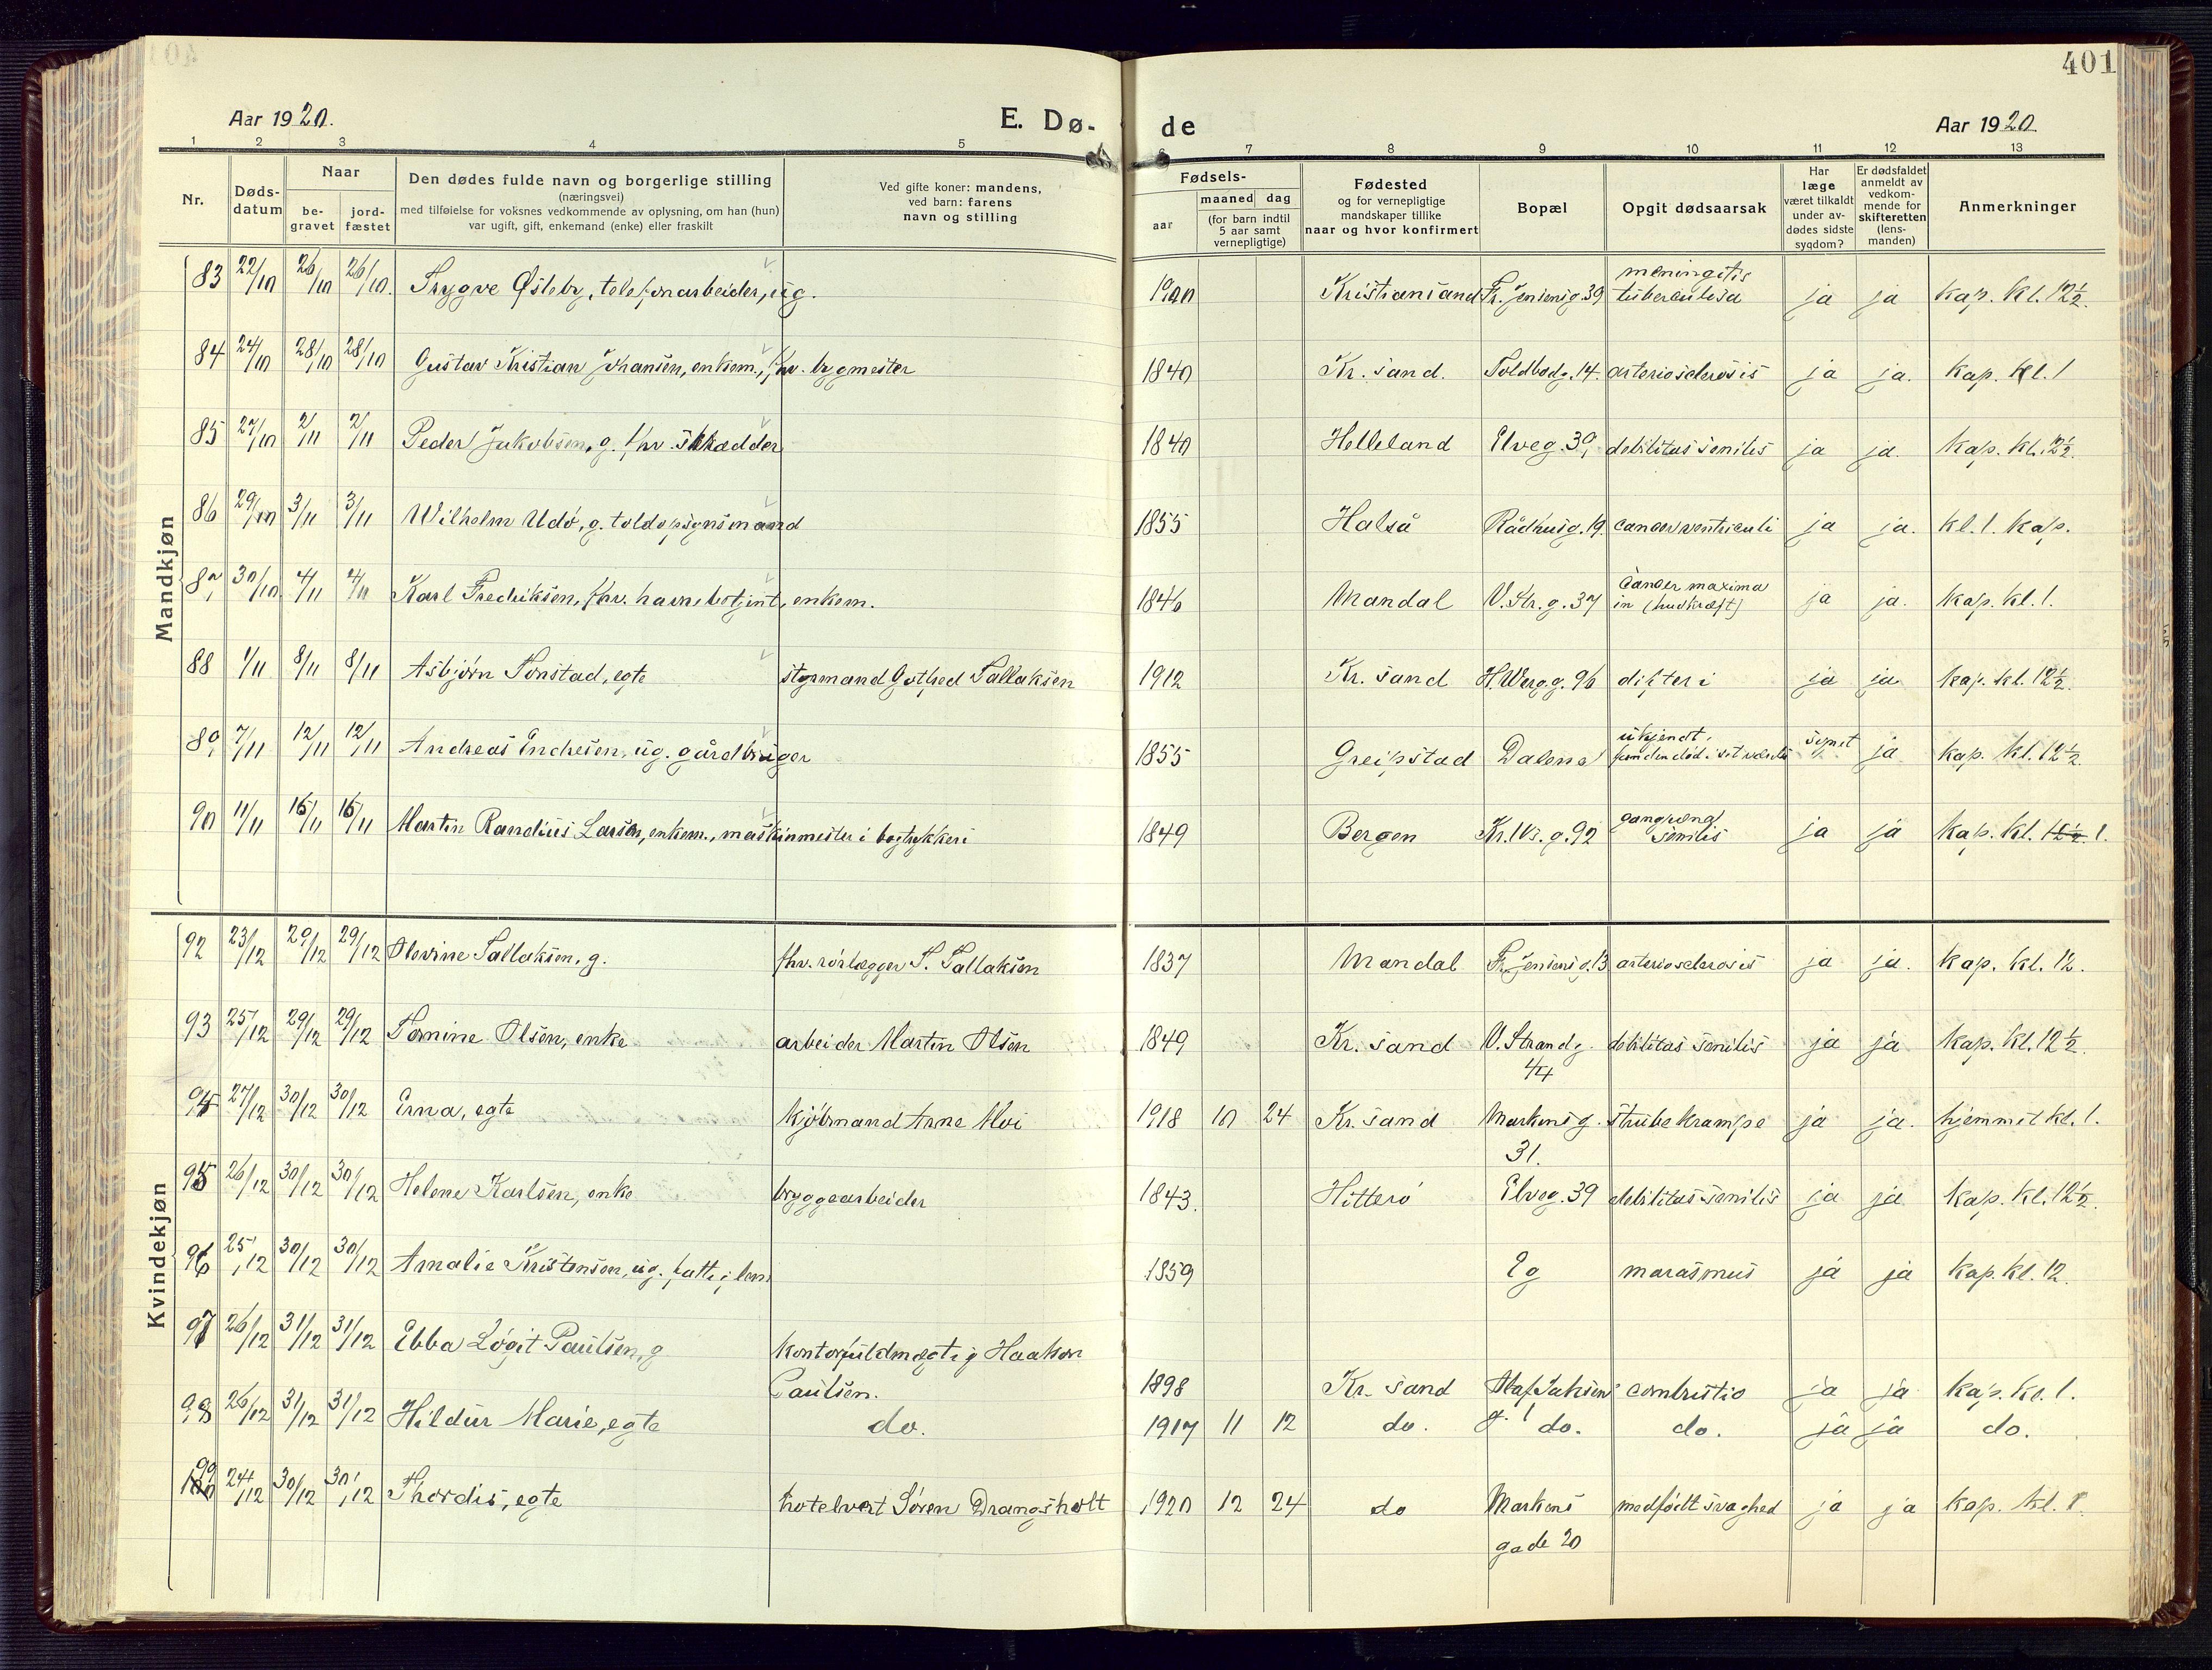 401
Aar 1920.
E. Dø-
de
Aar 1920
1 2 3 4 5 6 7 8 9 10 11 12 13
Nr.
Døds-
datum
Naar
be-
gravet
jord-
fæstet
Den dødes fulde navn og borgerlige stilling
(næringsvei)
med tilføielse for voksnes vedkommende av oplysning, om han (hun)
var ugift, gift, enkemand (enke) eller fraskilt
Ved gifte koner: mandens,
ved barn: farens
navn og stilling
Fødsels-
aar
maaned dag
(for barn indtil
5 aar samt
vernepligtige)
Fødested
og for vernepligtige
mandskaper tillike
naar og hvor konfirmert
Bopæl
Opgit dødsaarsak
Har
læge
været tilkaldt
under av-
dødes sidste
sygdom?
Er dødsfaldet
anmeldt av
vedkom-
mende for
skifteretten
(lens-
manden)
Anmerkninger
Mandkjøn
83 22/10 26/10 26/10. Trygve Østeby, telefonarbeider, ug. 1900 Kristiansand Fr. Jensensg. 39 meningitis
tuberculosa ja ja kap. kl. 12½.
84 24/10 28/10 28/10 Gustav Kristian Johansen, enkem., fhv. bygmester 1840 Kr. sand. Toldbodg. 14. arteriosclerosis ja ja. kap. kl. 1
85 27/10 2/11 2/11 Peder Jakobsen, g. fhv. skrædder 1840 Helleland Elveg. 39, debilitas senilis ja ja. kap. kl. 12½.
86 29/10 3/11 3/11 Wilhelm Udö, g. toldopsynsmand 1855 Halså Rådhusg. 19. cancer ventriculi ja ja. kl. 1. kap.
87 30/10 4/11 4/11 Karl Fredriksen, fhv. havnebetjent, enkem. 1846 Mandal V. Str. g. 37 cancer maxima
in (hudkræft) ja ja. kap. kl. 1.
88 1/11 8/11 8/11 Asbjørn Tonstad, egte styrmand Gotfred Tallaksen 1912 Kr. sand H. Werg. g. 96 difteri ja ja. kap. kl. 12½.
89 7/11 12/11 12/11 Andreas Endresen, ug. gårdbruger 1855 Greipstad Dalene ukjendt,
funden död i sit værelse synet ja kap. kl. 12½.
90 11/11 16/11 16/11 Martin Randius Larsen, enkem., maskinmester i bogtrykkeri 1849 Bergen Kr. IVs. g. 92 gangræna
senilis ja ja kap. kl. 12½. 1.
Kvindekjøn
92 23/12 29/12 29/12 Olevine Tallaksen, g. fhv. rørlægger T. Tallaksen 1837 Mandal Fr. Jensensg. 13 arteriosclerosis ja ja. kap. kl. 12.
93 25/12 29/12 29/12 Tomine Olsen, enke arbeider Martin Olsen 1849 Kr. sand V. Strandg.
44 debilitas senilis ja ja kap. kl. 12½.
94 27/12 30/12 30/12 Erna, egte kjöbmand Arne Moi 1918 10 24 Kr. sand Markensg.
31. strubekrampe ja ja. hjemmet kl. 1.
95 26/12 30/12 30/12 Helene Karlsen, enke bryggearbeider 1843. Hitterö Elveg. 39 debilitas senilis ja ja kap. kl. 12½.
96 25/12 30/12 30/12 Amalie Kristensen, ug. fattiglem 1859 Eg marasmus ja ja kap. kl. 12.
97 26/12 31/12 31/12 Ebba Løgit Paulsen, g kontorfuldmægtig Haakon
Paulsen. 1898 Kr. sand Olaf Jahsens
g. 1 combustio ja ja kap. kl. 1.
98 26/12 31/12 31/12 Hildur Marie, egte do. 1917 11 12 do. do. do. ja ja do.
99 24/12 30/12 30/12 Thordis, egte hotelvert Sören Drangsholt 1920 12 24 do Markens
gade 20 medfödt svaghed ja ja kap. kl. 1.